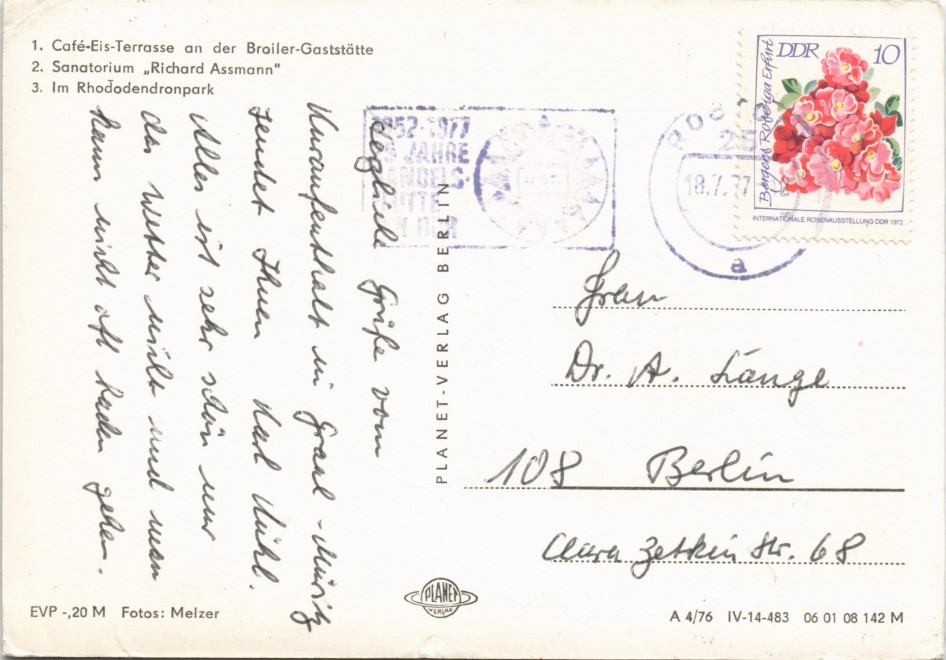 1. Café-Eis-Terrasse an der Broiler-Gaststätte
2. Sanatorium „Richard Assmann"
3. Im Rhododendronpark
Grüße vom
Kuraufenthalt in Graal-Müritz
sendet Ihnen Karl Kühl.
Alles ist sehr schön nur
das Wetter nicht und man
kann nicht oft baden gehen.
1952-1977
25 JAHRE
HANDELS-
IN DER
PLANET-VERLAG BERLIN
ROSTOCK
18.7.77
a
DDR 10
Bergers Rose Erfurt
INTERNATIONALE ROSENAUSSTELLUNG DDR 1972
Frau
Dr. A. Lange
108 Berlin
Clara Zetkin Str. 68
EVP -,20 M Fotos: Melzer
PLANET
VERLAG
A 4/76 IV-14-483 06 01 08 142 M